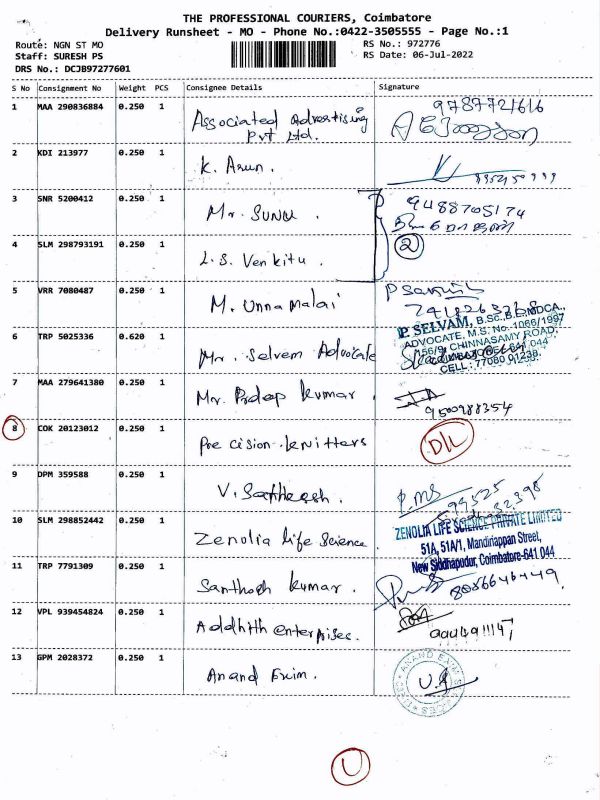 THE PROFESSIONAL COURIERS, Coimbatore
Delivery Runsheet - MO - Phone No.:0422-3505555 - Page No.:1
Route: NGN ST MO
RS No.: 972776
Staff: SURESH PS
RS Date: 06-Jul-2022
DRS No.: DCJB97277601
S No Consignment No Weight PCS Consignee Details Signature
1 MAA 290836884 0.250 1 Associated Advertising 9787721616
Pvt Ltd.
2 KDI 213977 0.250 1 K. Arun.
3 SNR 5200412 0.250 1 Mr. SUNU . 9488705174
4 SLM 298793191 0.250 1 L.S. Venkitu . 2
5 VRR 7080487 0.250 1 M. Unnamalai
6 TRP 5025336 0.620 1 Mr. Selvem Advocate
P. SELVAM, B.Sc.,B.L.,NDCA.,
ADVOCATE, M.S. No. 1066/1997
56/9, CHINNASAMY ROAD,
CELL : 77080 01238.
7 MAA 279641380 0.250 1 Mr. Pradeep Kumar . 9500988354
8 COK 20123012 0.250 1 Precision Knitters D/L
9 DPM 359588 0.250 1 V. Satheesh .
10 SLM 298852442 0.250 1 Zenolia Life Science .
ZENOLIA LIFE SCIENCE PRIVATE LIMITED
51A, 51A/1, Mandiriappan Street,
New Siddhapudur, Coimbatore-641 044
11 TRP 7791309 0.250 1 Santhosh Kumar . 8086646449.
12 VPL 939454824 0.250 1 Addhith enterprises.
13 GPM 2028372 0.250 1 Anand Exim .
U